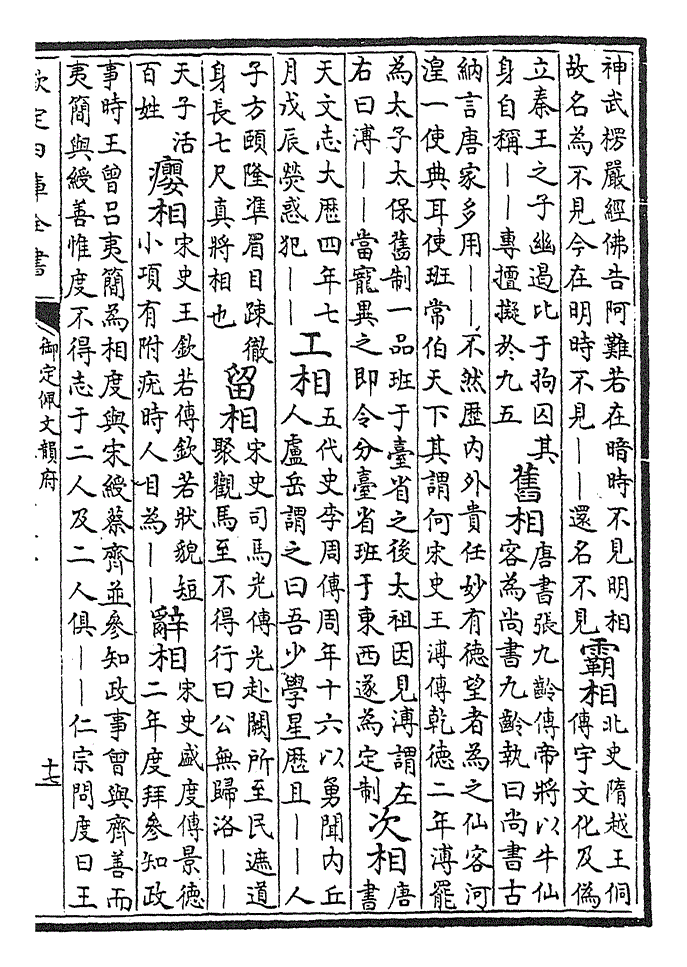 神武楞嚴經佛告阿難若在暗時不見明相
故名為不見今在明時不見——還名不見
霸相
北史隋越王侗
傳宇文化及偽
立秦王之子幽遏比于拘囚其
身自稱——專擅擬於九五
舊相
唐書張九齡傳帝將以牛仙
客為尚書九齡執曰尚書古
納言唐家多用——不然歷內外貴任妙有德望者為之仙客河
湟一使典耳使班常伯天下其謂何宋史王溥傳乾德二年溥罷
為太子太保舊制一品班于臺省之後太祖因見溥謂左
右曰溥——當寵異之即令分臺省班于東西遂為定制
次相
唐
書
天文志大歷四年七
月戊辰熒惑犯——
工相
五代史李周傳周年十六以勇聞內丘
人盧岳謂之曰吾少學星歷且——人
子方頤隆準眉目疎徹
身長七尺真將相也
留相
宋史司馬光傳光赴闕所至民遮道
聚觀馬至不得行曰公無歸洛——
天子活
百姓
癭相
宋史王欽若傳欽若狀貌短
小項有附疣時人目為——
辭相
宋史盛度傳景德
二年度拜參知政
事時王曾呂夷簡為相度與宋綬蔡齊並參知政事曾與齊善而
夷簡與綬善惟度不得志于二人及二人俱——仁宗問度曰王
欽定四庫全書
御定佩文韻府
十七